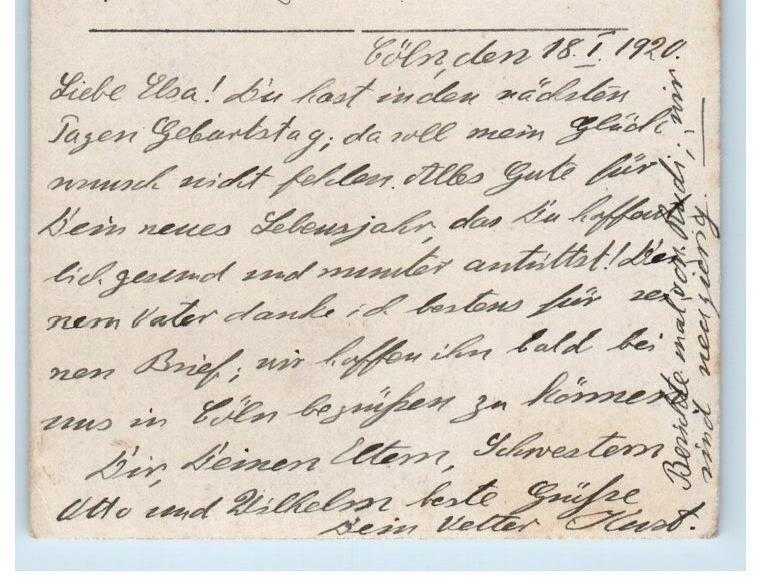 Cöln, den 18. I. 1920.
Liebe Elsa! Du hast in den nächsten
Tagen Geburtstag; da soll mein Glück
wunsch nicht fehlen. Alles Gute für
Dein neues Lebensjahr, das Du hoffent
lich gesund und munter antrittst! Dei
nem Vater danke ich bestens für sei
nen Brief; wir hoffen ihn bald bei
uns in Cöln begrüßen zu können.
Dir, Deinen Eltern, Schwestern
Otto und Wilhelm beste Grüße
Dein Vetter Kurt.
Berichte mal von Rudi; wir
sind neugierig.